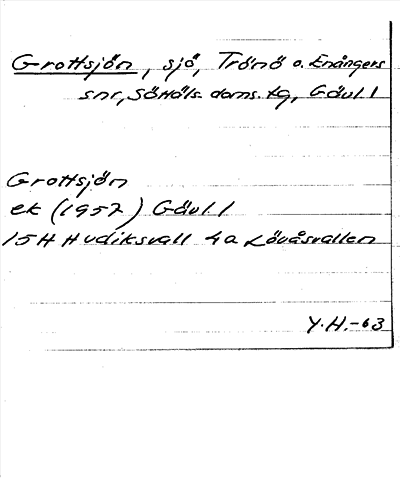 Grottsjön, sjö, Trönö o. Enångers
snr, Söhäls. doms. tg, Gävl l
Grottsjön
ek (1957) Gävl l
15H Hudiksvall 4a Lövåsvallen
Y.H.-63